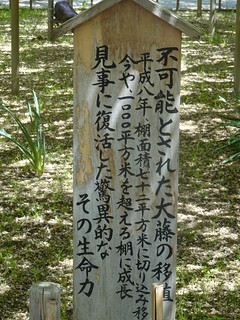 不可能とされた大藤の移植
平成八年、棚面積七十二平方米に切り込み移
今や、一〇〇〇平方米を超える棚に成長
見事に復活した驚異的な
その生命力